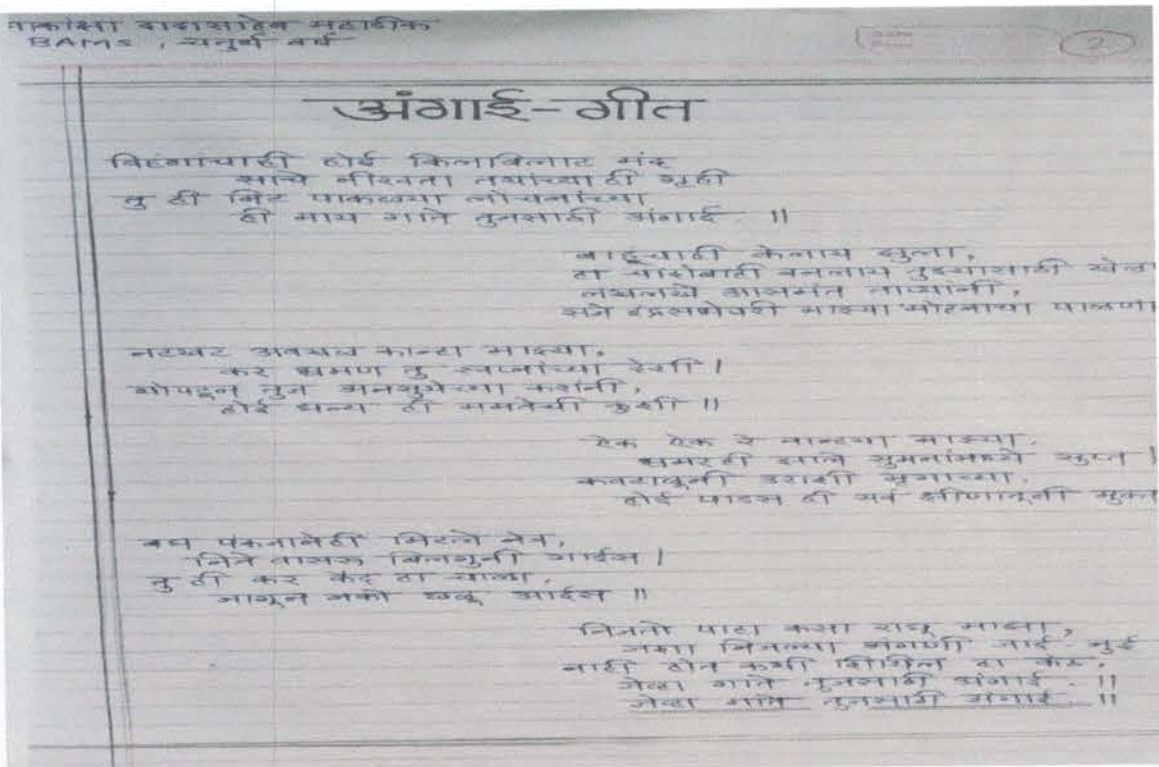 BAMS, चतुर्थ वर्ष
2
अंगाई-गीत
विहंगांचाही होई किलबिलाट मंद
साचे नीरवता तयांच्या ही गृही
तु ही मिट पाकळ्या लोचनांच्या
ही माय गाते तुजसाठी अंगाई ||
बाहूंचाही केलाय झुला,
हा चांदोबाही बनलाय तुझ्यासाठी खेळ
लखलखे आसमंत ताऱ्यांनी,
माझ्या पाळणा
नटखट अवखळ कान्हा माझ्या,
कर भ्रमण तु स्वप्नांच्या देशी |
तुज करांनी,
होई धन्य ही ममतेची कुशी ||
ऐक ऐक रे तान्ह्या माझ्या,
भ्रमरही झाले सुमनांमध्ये सुप्त |
उराशी मृगाच्या,
होई पाडस ही सर्व मुक्त
बघ मिटले नेत्र,
निजे वासरू बिलगुनी गाईस |
तु ही कर कैद हा चाळा,
जागून नको छळू आईस ||
निजतो पाहा कसा राजू माझा,
जशा निजल्या अंगणी जाई-जुई
नाही होत कधी शिथिल हा कंठ,
जेव्हा गाते तुजसाठी अंगाई. ||
जेव्हा गाते तुजसाठी अंगाई. ||